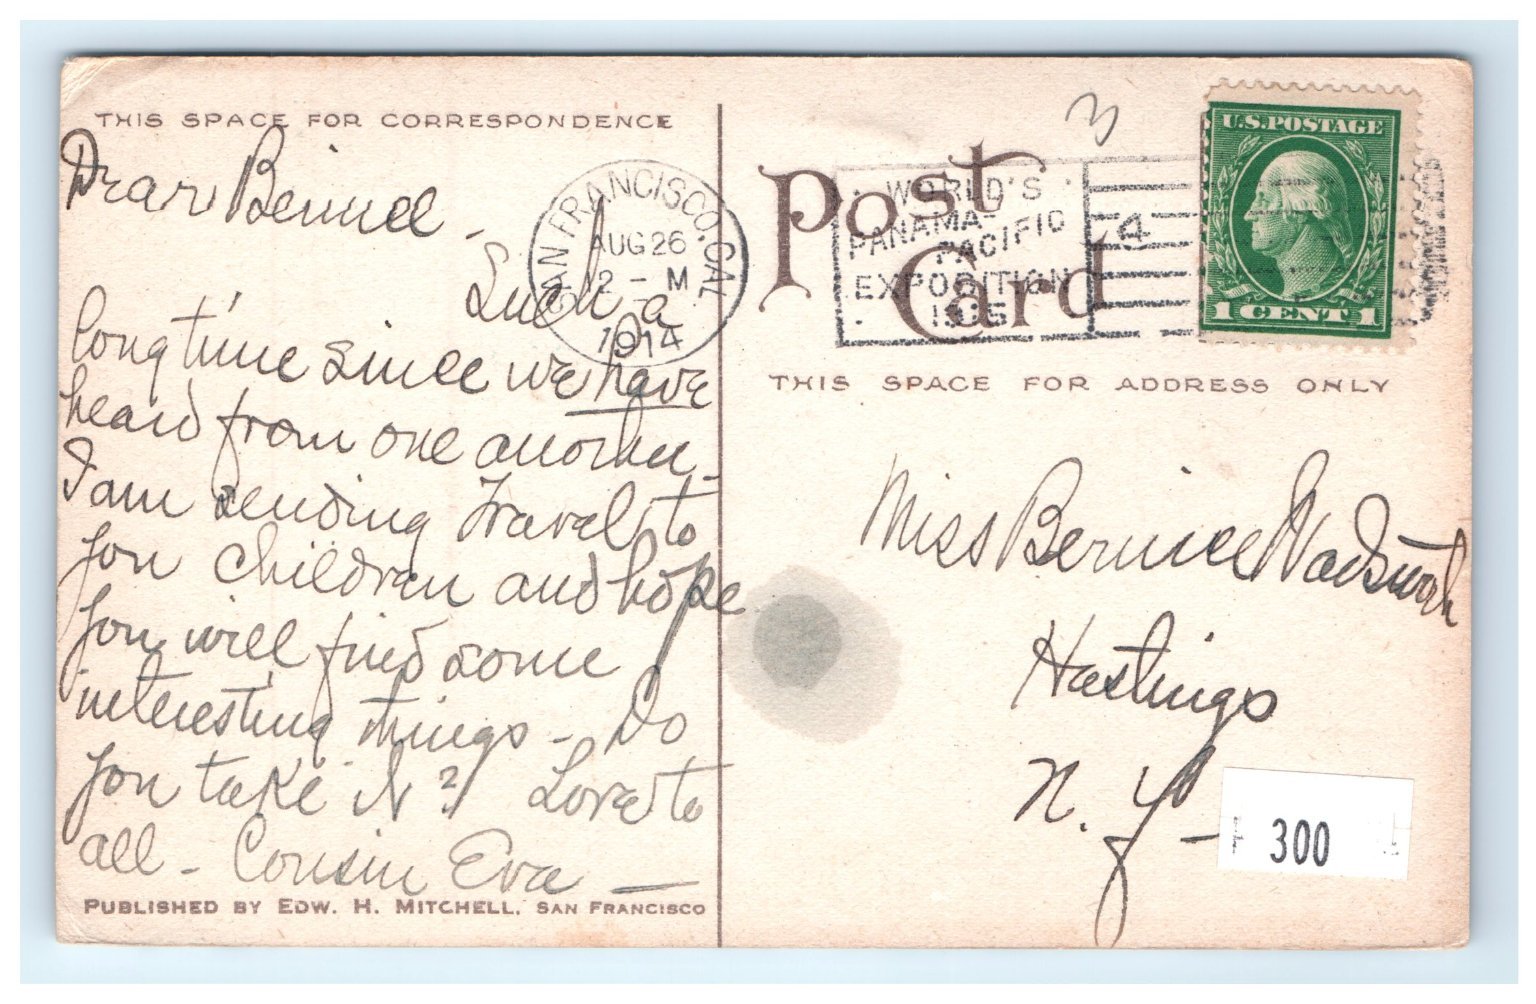 THIS SPACE FOR CORRESPONDENCE
Dear Bernice -
Such a
long time since we have
heard from one another -
I am sending Travel to
you children and hope
you will find some
interesting things - Do
you take it? Love to
all - Cousin Eva -
PUBLISHED BY EDW. H. MITCHELL, SAN FRANCISCO
SAN FRANCISCO, CAL.
AUG 26
12 - M
1914
3
Post
Card
WORLD'S
PANAMA-
PACIFIC
EXPOSITION
1915
4
U.S. POSTAGE
1 CENT 1
THIS SPACE FOR ADDRESS ONLY
Miss Bernice Wadsworth
Hastings
N. Y. -
300